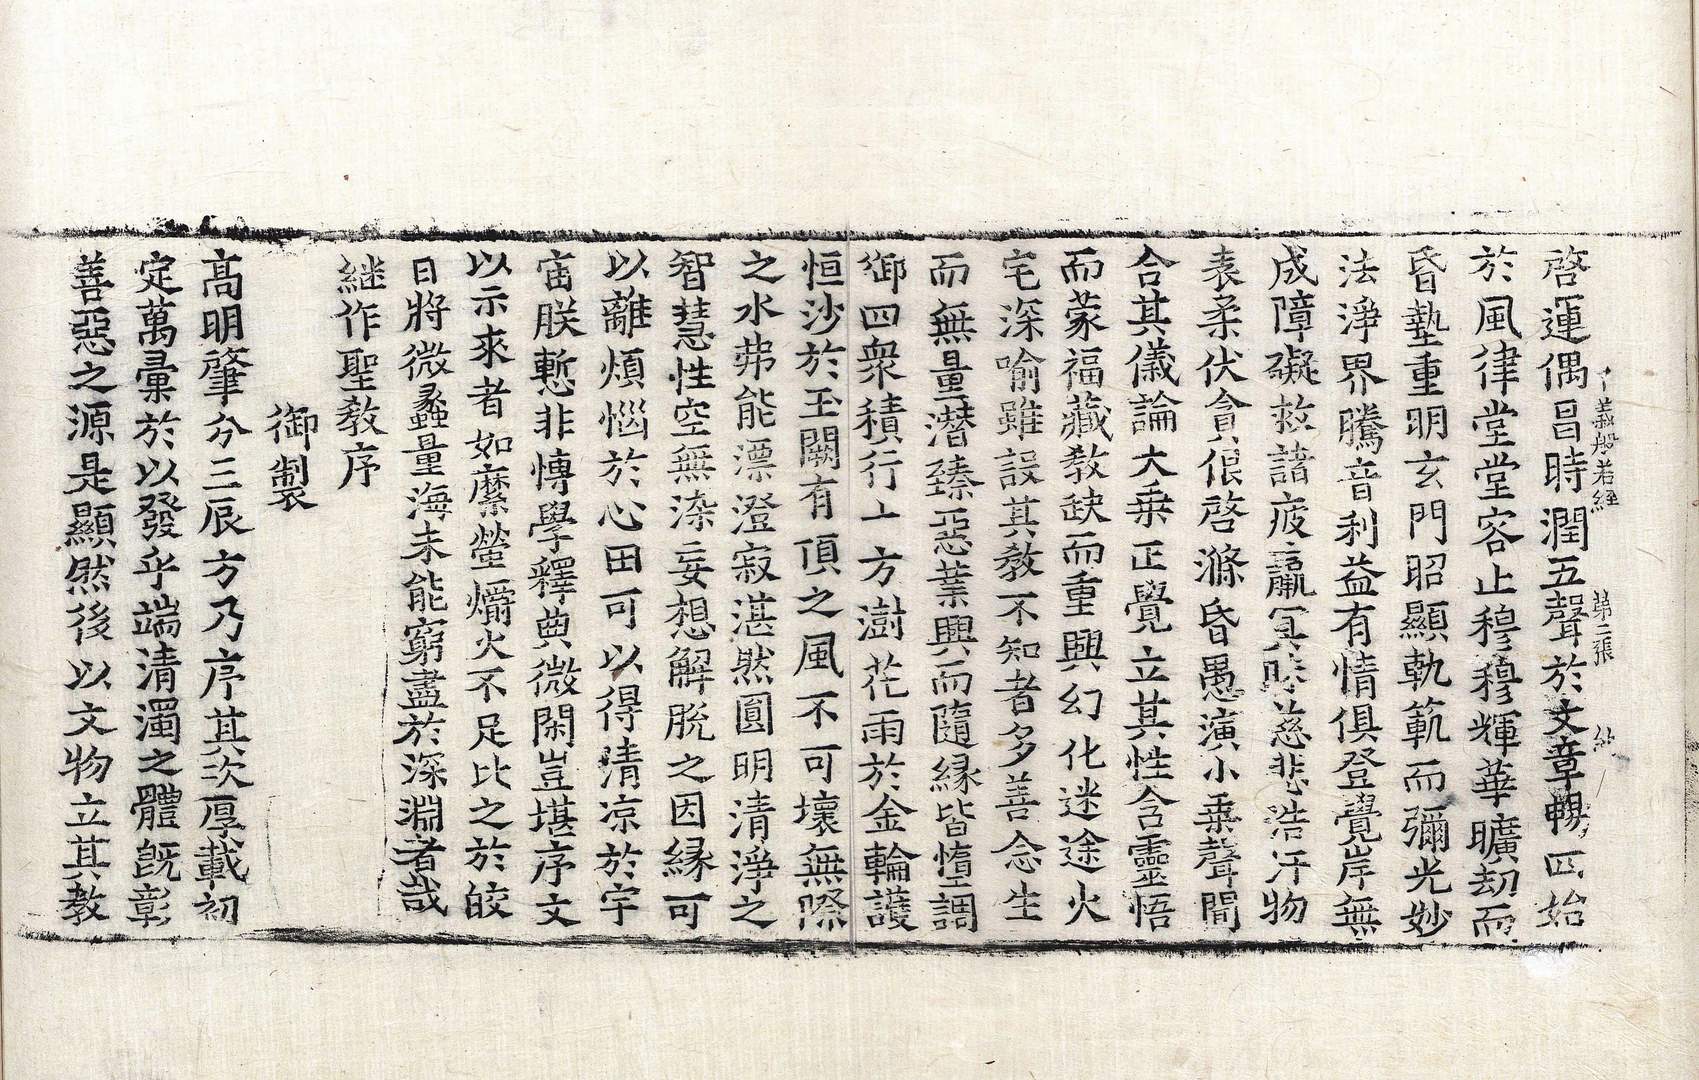 義般若經 第二張
啓運偶昌時潤五聲於文章暢四始
於風律堂堂容止穆穆輝華曠劫而
昏墊重明玄門昭顯軌範而彌光妙
法淨界騰音利益有情俱登覺岸無
成障礙救諸疲羸冥慈悲浩汗物
表柔伏貪佷啓滌昏愚演小乘聲聞
合其儀論大乘正覺立其性含靈悟
而蒙福藏教缺而重興幻化迷途火
宅深喻雖設其教不知者多善念生
而無量潛臻惡業興而隨緣皆墮調
御四衆積行十方澍花雨於金輪護
恒沙於玉闕有頂之風不可壞無際
之水弗能漂澄寂湛然圓明清淨之
智慧性空無染妄想解脫之因緣可
以離煩惱於心田可以得清凉於宇
宙朕慙非博學釋典微閑豈堪序文
以示來者如縻螢爝火不足比之於皎
日將微蠡量海未能窮盡於深淵者哉
継作聖敎序
御製
高明肇分三辰方乃序其次厚載初
定萬彙於以發乎端清濁之體旣彰
善惡之源是顯然後以文物立其教